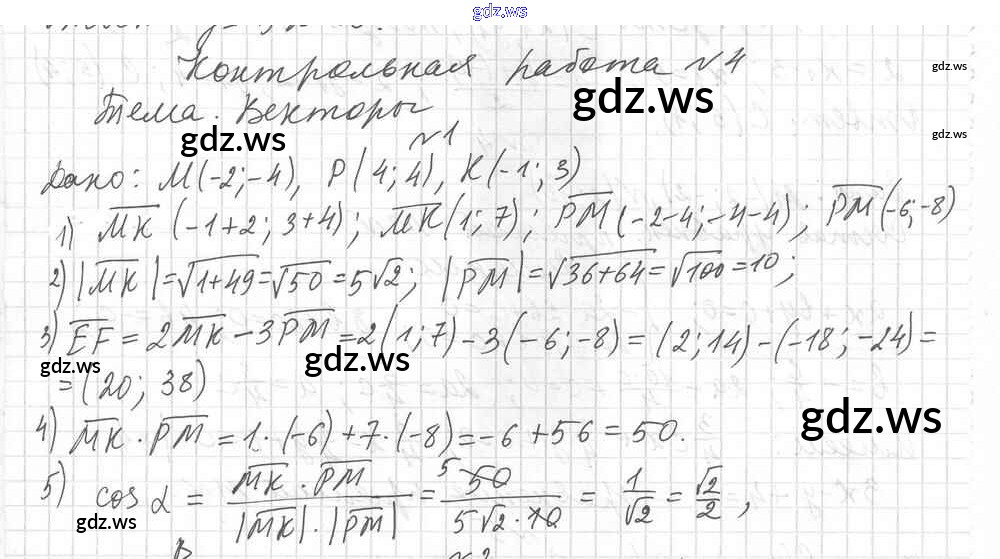 gdz.ws
Контрольная работа №4
gdz.ws
Тема. Векторы
gdz.ws
gdz.ws
gdz.ws
№1
Дано: M(-2;-4), P(4;4), K(-1;3)
1) MK (-1+2; 3+4); MK(1;7); PM(-2-4;-4-4); PM(-6;-8)
2) |MK|=√1+49=√50=5√2; |PM|=√36+64=√100=10;
3) EF = 2MK-3PM=2(1;7)-3(-6;-8)=(2;14)-(-18;-24)=
gdz.ws
gdz.ws
=(20; 38)
gdz.ws
4) MK·PM=1·(-6)+7·(-8)=-6+56=50.
5) cos α = MK·PM / |MK|·|PM| = 5 50 / 5√2·10 = 1/√2 = √2/2,
gdz.ws